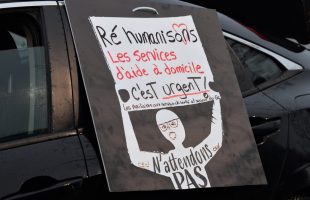 Ré humanisons
Les services
d'aide à domicile
C'est urgent!
N'attendons
PAS